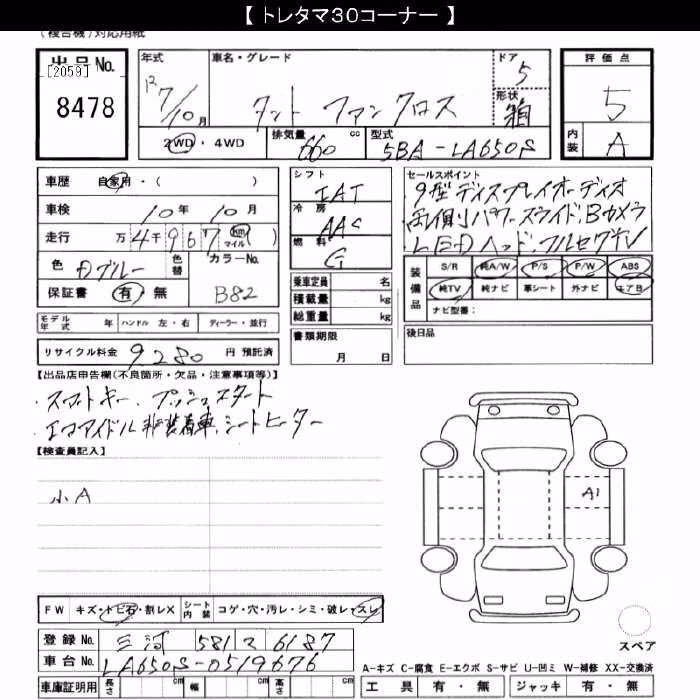 【 トレタマ30コーナー 】
(複合機)対応用紙
出品No. [2059] 8478
年式 R7/10月
車名・グレード タント ファンクロス
ドア 5
形状 箱
2WD・4WD
排気量 660 cc
型式 5BA-LA650S
評価点 5
内装 A
車歴 自家用・( )
車検 10年 10月
走行 万4千967 km マイル ( )
色 Dブルー 色替 カラーNo. B82
保証書 有・無
シフト IAT
冷房 AAC
燃料 G
乗車定員 名
積載量 kg
総重量 kg
書類期限 月 日
セールスポイント
9型ディスプレイオーディオ
両側パワースライド、Bカメラ
LEDヘッド、フルセグTV
装備品 S/R 純A/W P/S P/W ABS
純TV 純ナビ 革シート 外ナビ エアB
ナビ型番:
後日品
モデル年式 年 ハンドル 左・右 ディーラー・並行
リサイクル料金 9280 円 預託済
【出品店申告欄(不良箇所・欠品・注意事項等)】
・スマートキー、プッシュスタート
・エコアイドル非装着車、シートヒーター
【検査員記入】
小A
A1
FW キズ・トビ石・割レX シート内装 コゲ・穴・汚レ・シミ・破レ・スレ
登録No. 三河 581 マ 6187
車台No. LA650S-0519676
車庫証明用 長さ cm 幅 cm 高さ cm
スペア
A-キズ C-腐食 E-エクボ S-サビ U-凹ミ W-補修 XX-交換済
工具 有・無 ジャッキ 有・無